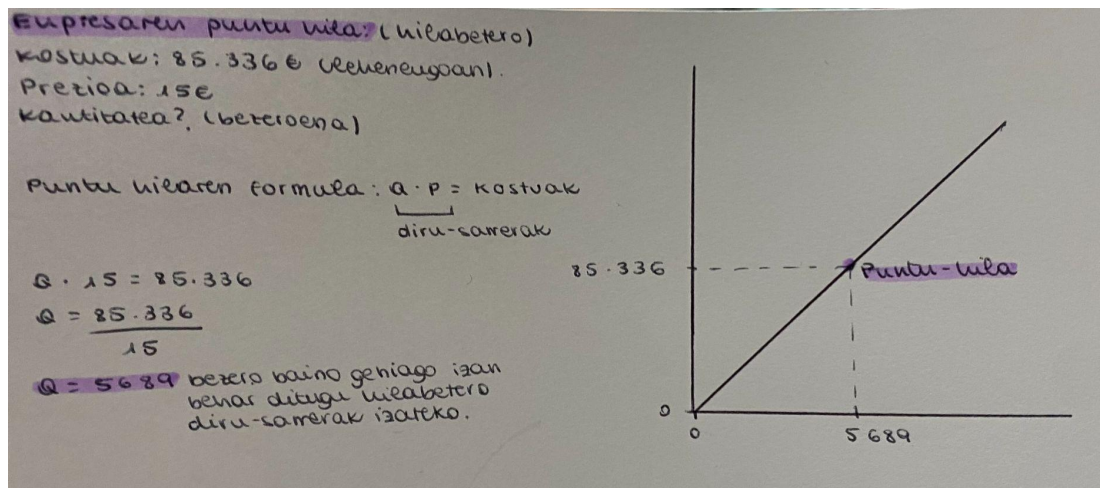 Enpresaren puntu hila: (hilabetero)
Kostuak: 85.336 € (lehenengoan).
Prezioa: 15€
Kantitatea? (bezeroena)
Puntu hilaren formula: Q · P = Kostuak
diru-sarrerak
Q · 15 = 85.336
Q = 85.336
15
Q = 5689 bezero baino gehiago izan
behar ditugu hilabetero
diru-sarrerak izateko.
85.336
Puntu-hila
0
0
5689